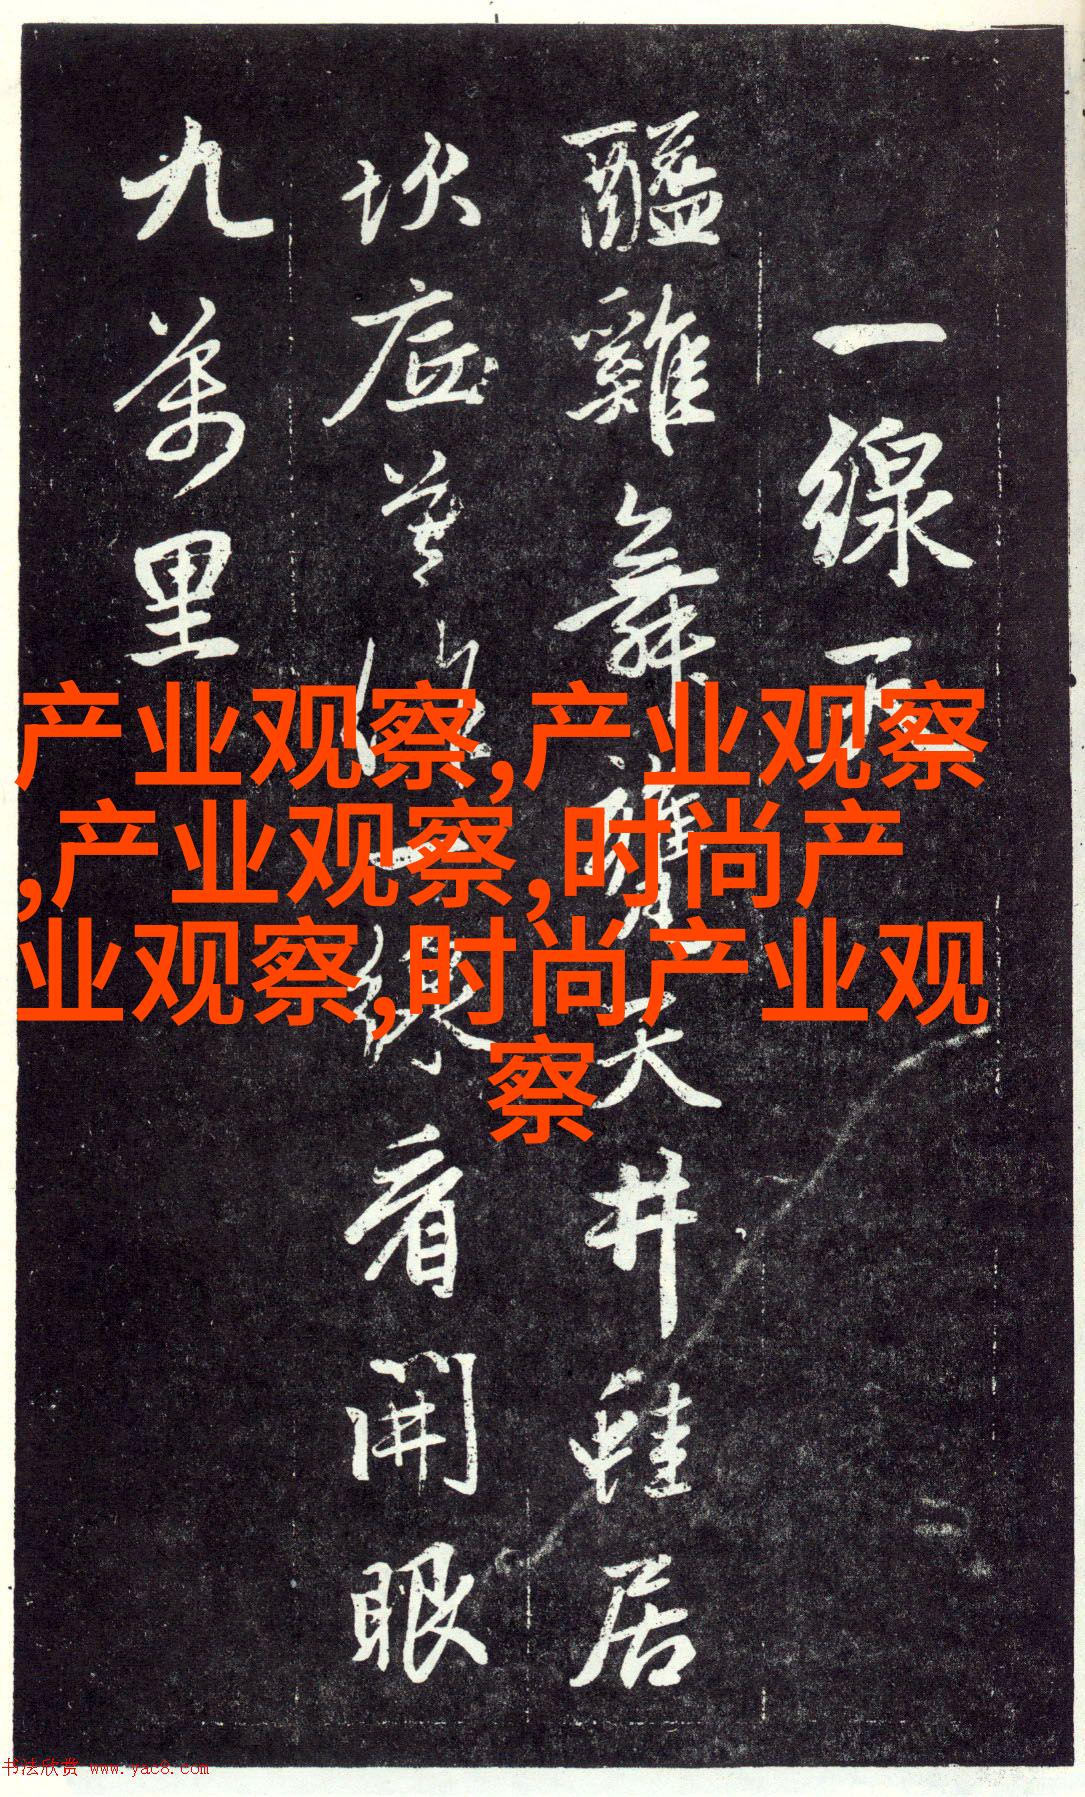 一線天
醯雞舞甕天井蛙居
坎底莫一線看開眼
九萬里
产业观察,产业观察
,产业观察,时尚产
业观察,时尚产业观
察
书法欣赏 www.yac8.com